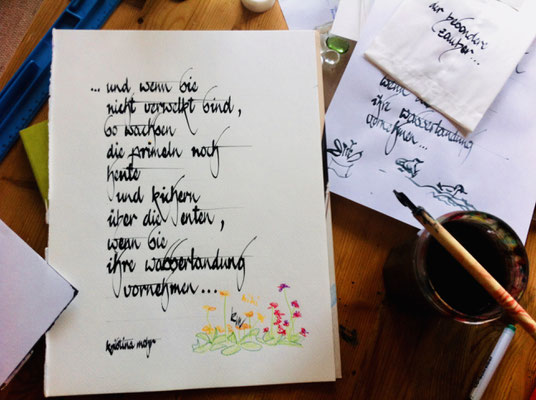 ... und wenn sie
nicht verwelkt sind,
so wachsen
die primeln noch
heute
und kichern
über die enten,
wenn sie
ihre wasserlandung
vornehmen...
kristina mohr
der besondere
zauber...
wenn
ihre wasserlandung
vornehmen...